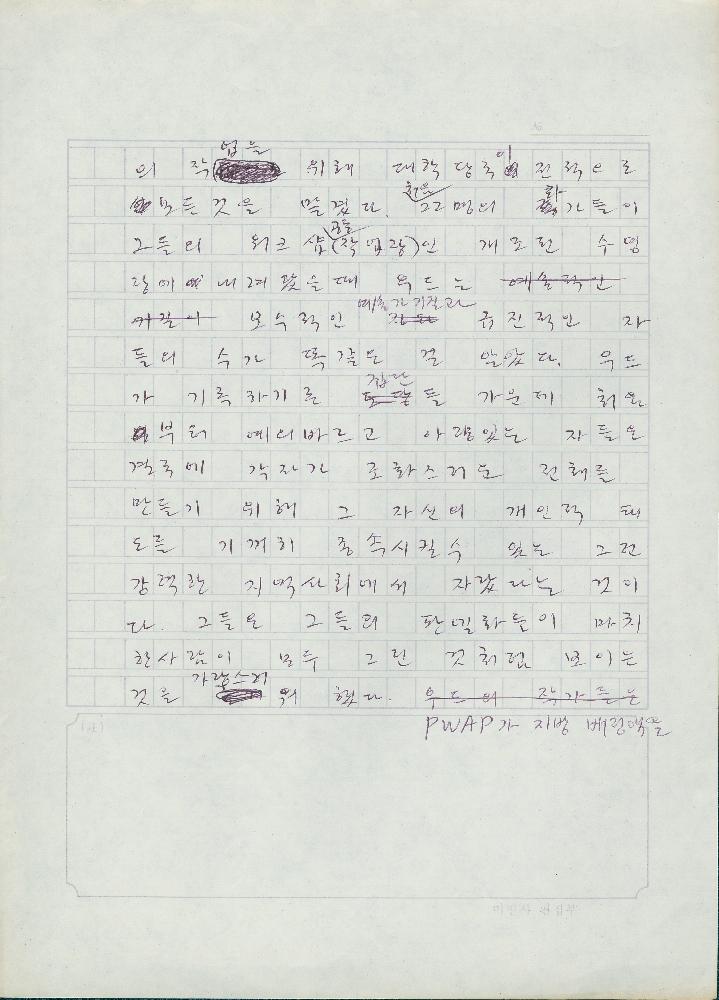 업을
의 작 위해 대학 당국이 전적으로
모든 것을 맡겼다. 그 명의 화가들이
그들의 워크 샵(작업장)인 개조된 수영
장에 내려 왔을 때 우드는 예술적인
기질이 보수적인 예술가 기질과 급진적인 자
들의 수가 똑같은 걸 알았다. 우드
가 기록하기론 집단들 가운데 최
부의 예의바르고 아량있는 자들은
결국에 각자가 조화스러운 전체를
만들기 위해 그 자신의 개인적 태
도를 기꺼이 종속시킬 수 있는 그런
강력한 지역사회에서 자랐다는 것이
다. 그들은 그들의 판넬화들이 마치
한사람이 모두 그린 것처럼 보이는
것을 자랑스러워 했다. 우드의 작가들은
PWAP가 지방